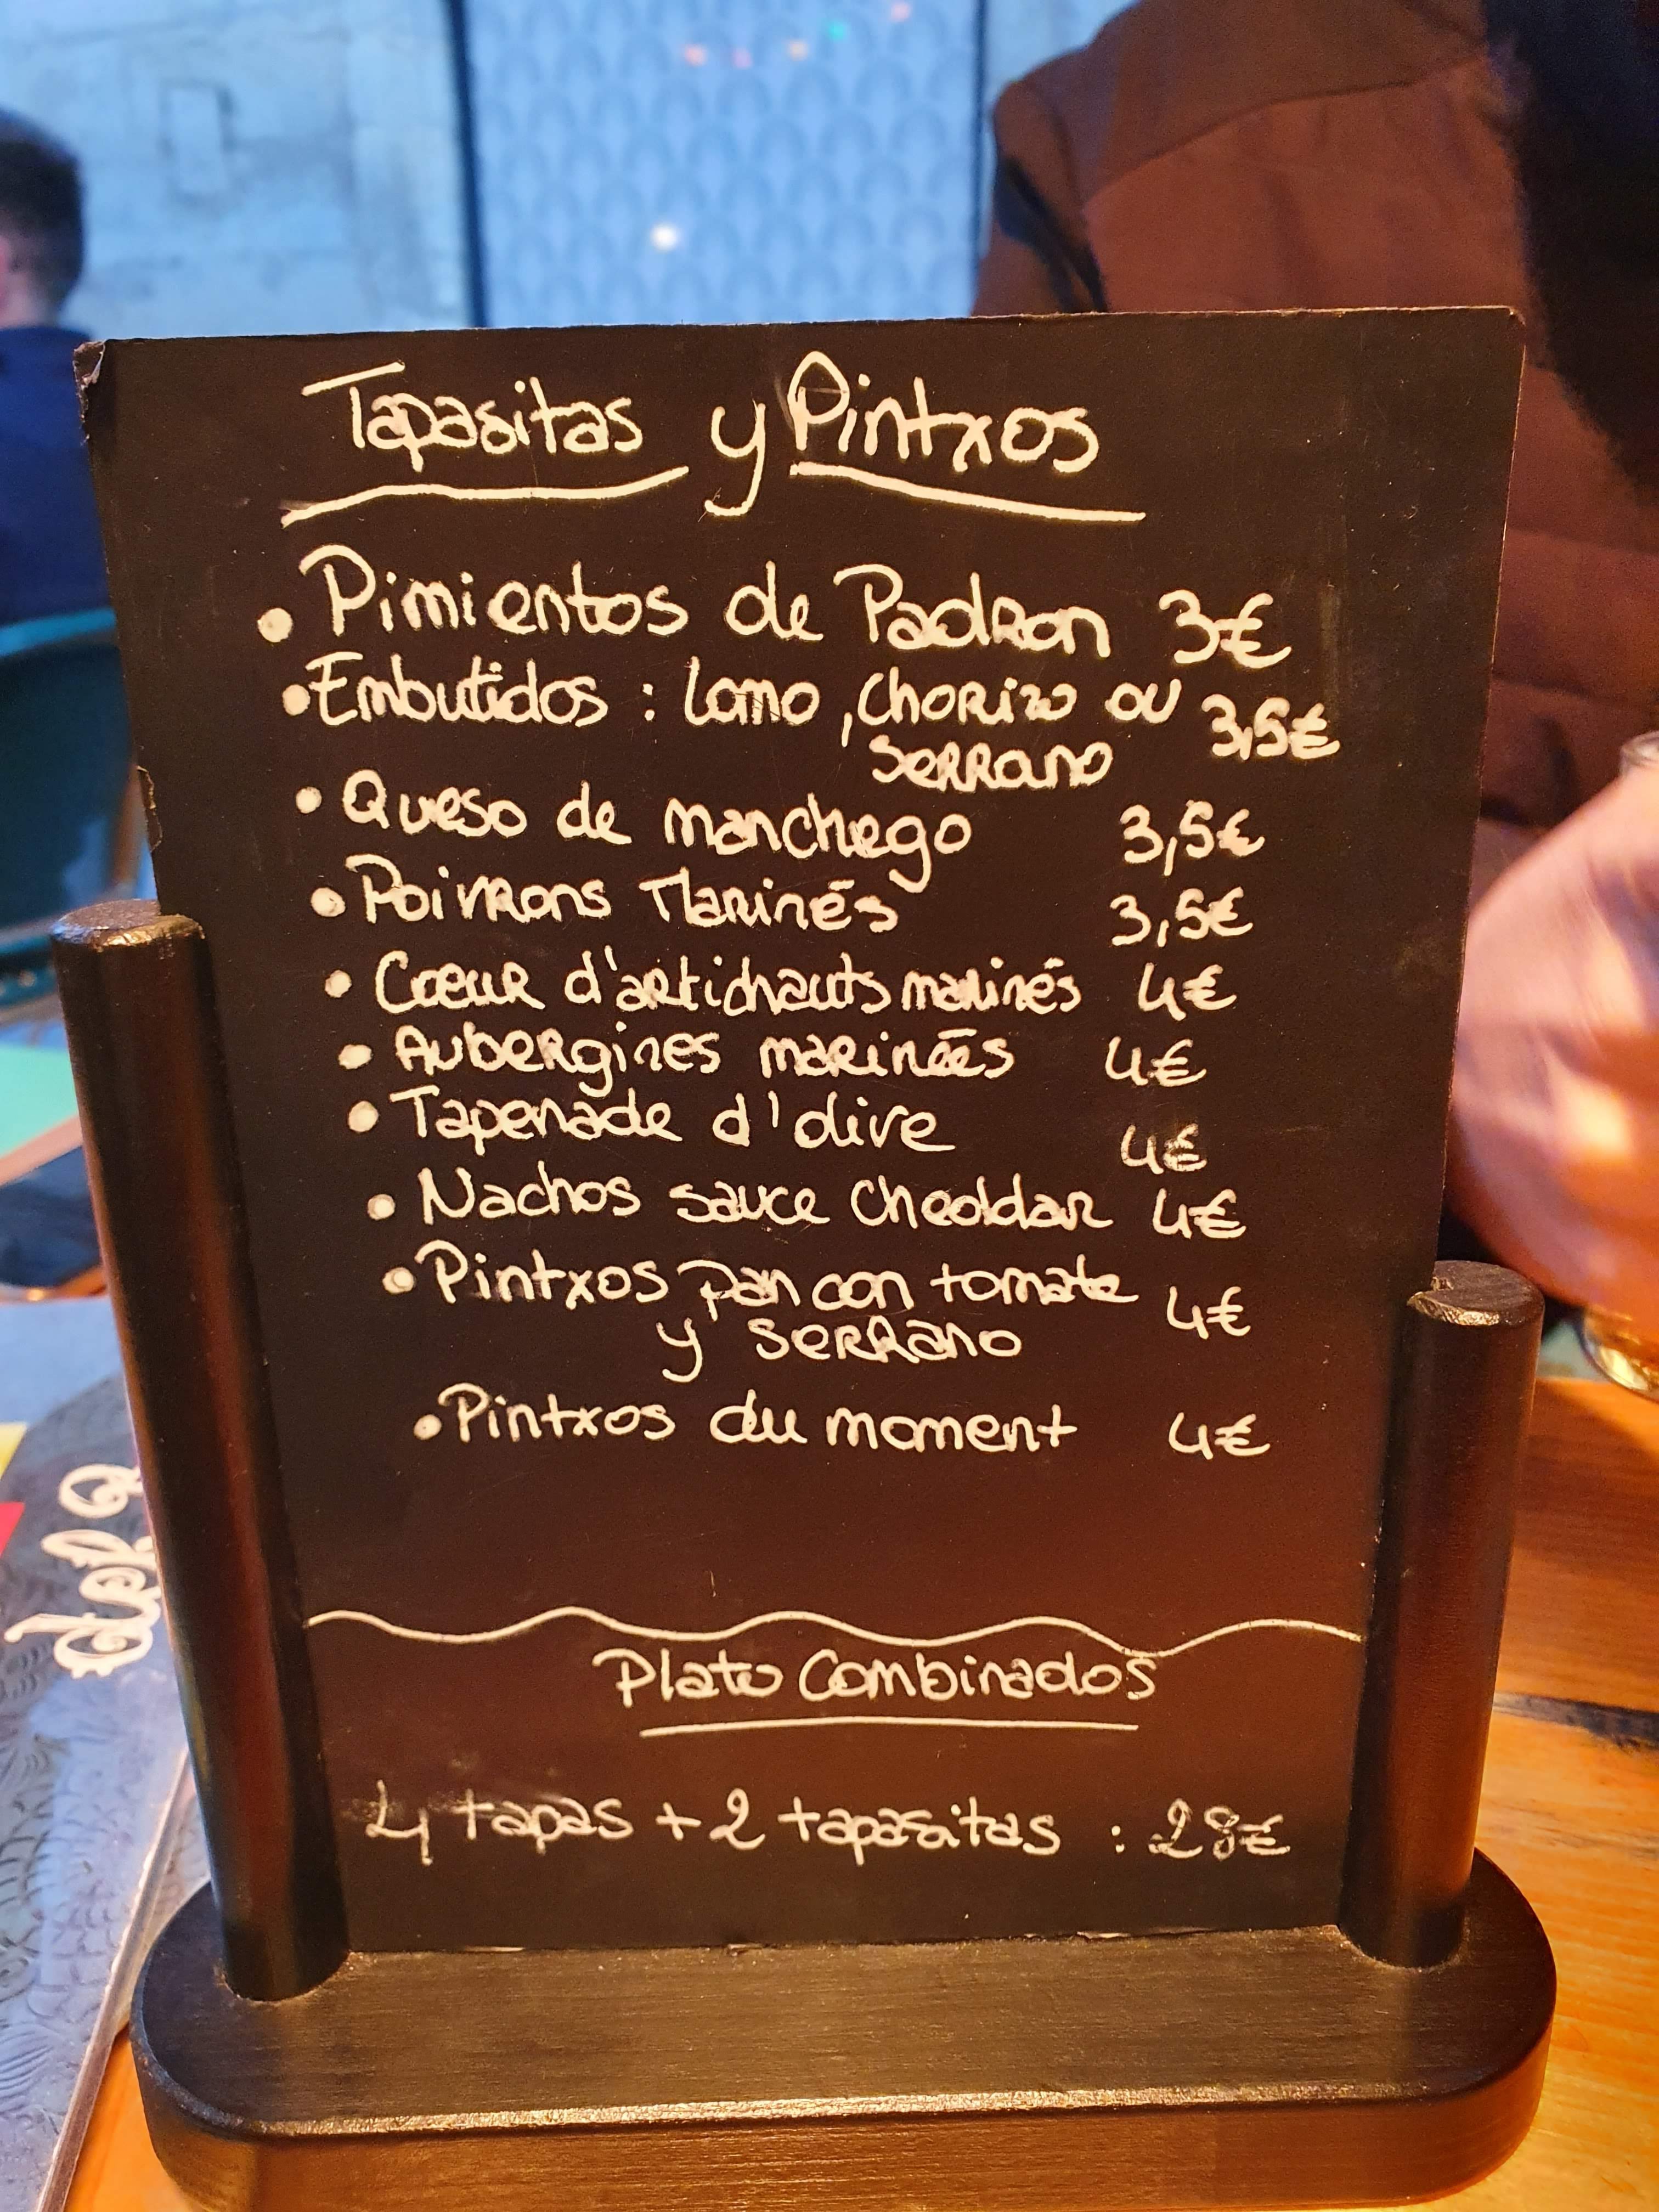 Tapasitas y Pintxos
• Pimientos de Padron 3€
• Embutidos : lomo, chorizo ou 3,5€
serrano
• Queso de manchego 3,5€
• Poivrons Marinés 3,5€
• Cœur d'artichauts marinés 4€
• Aubergines marinées 4€
• Tapenade d'olive 4€
• Nachos sauce cheddar 4€
• Pintxos pan con tomate 4€
y serrano
• Pintxos du moment 4€
Plato Combinados
4 tapas + 2 tapasitas : 28€